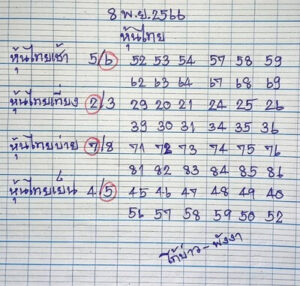 8 พ.ย.2566
หุ้นไทย
หุ้นไทยเช้า 5/6 52 53 54 57 58 59
62 63 64 67 68 69
หุ้นไทยเที่ยง 2/3 29 20 21 24 25 26
39 30 31 34 35 36
หุ้นไทยบ่าย 7/8 71 72 73 74 75 76
81 82 83 84 85 86
หุ้นไทยเย็น 4/5 45 46 47 48 49 40
56 57 58 59 50 52
ไก่ขาว-พังงา